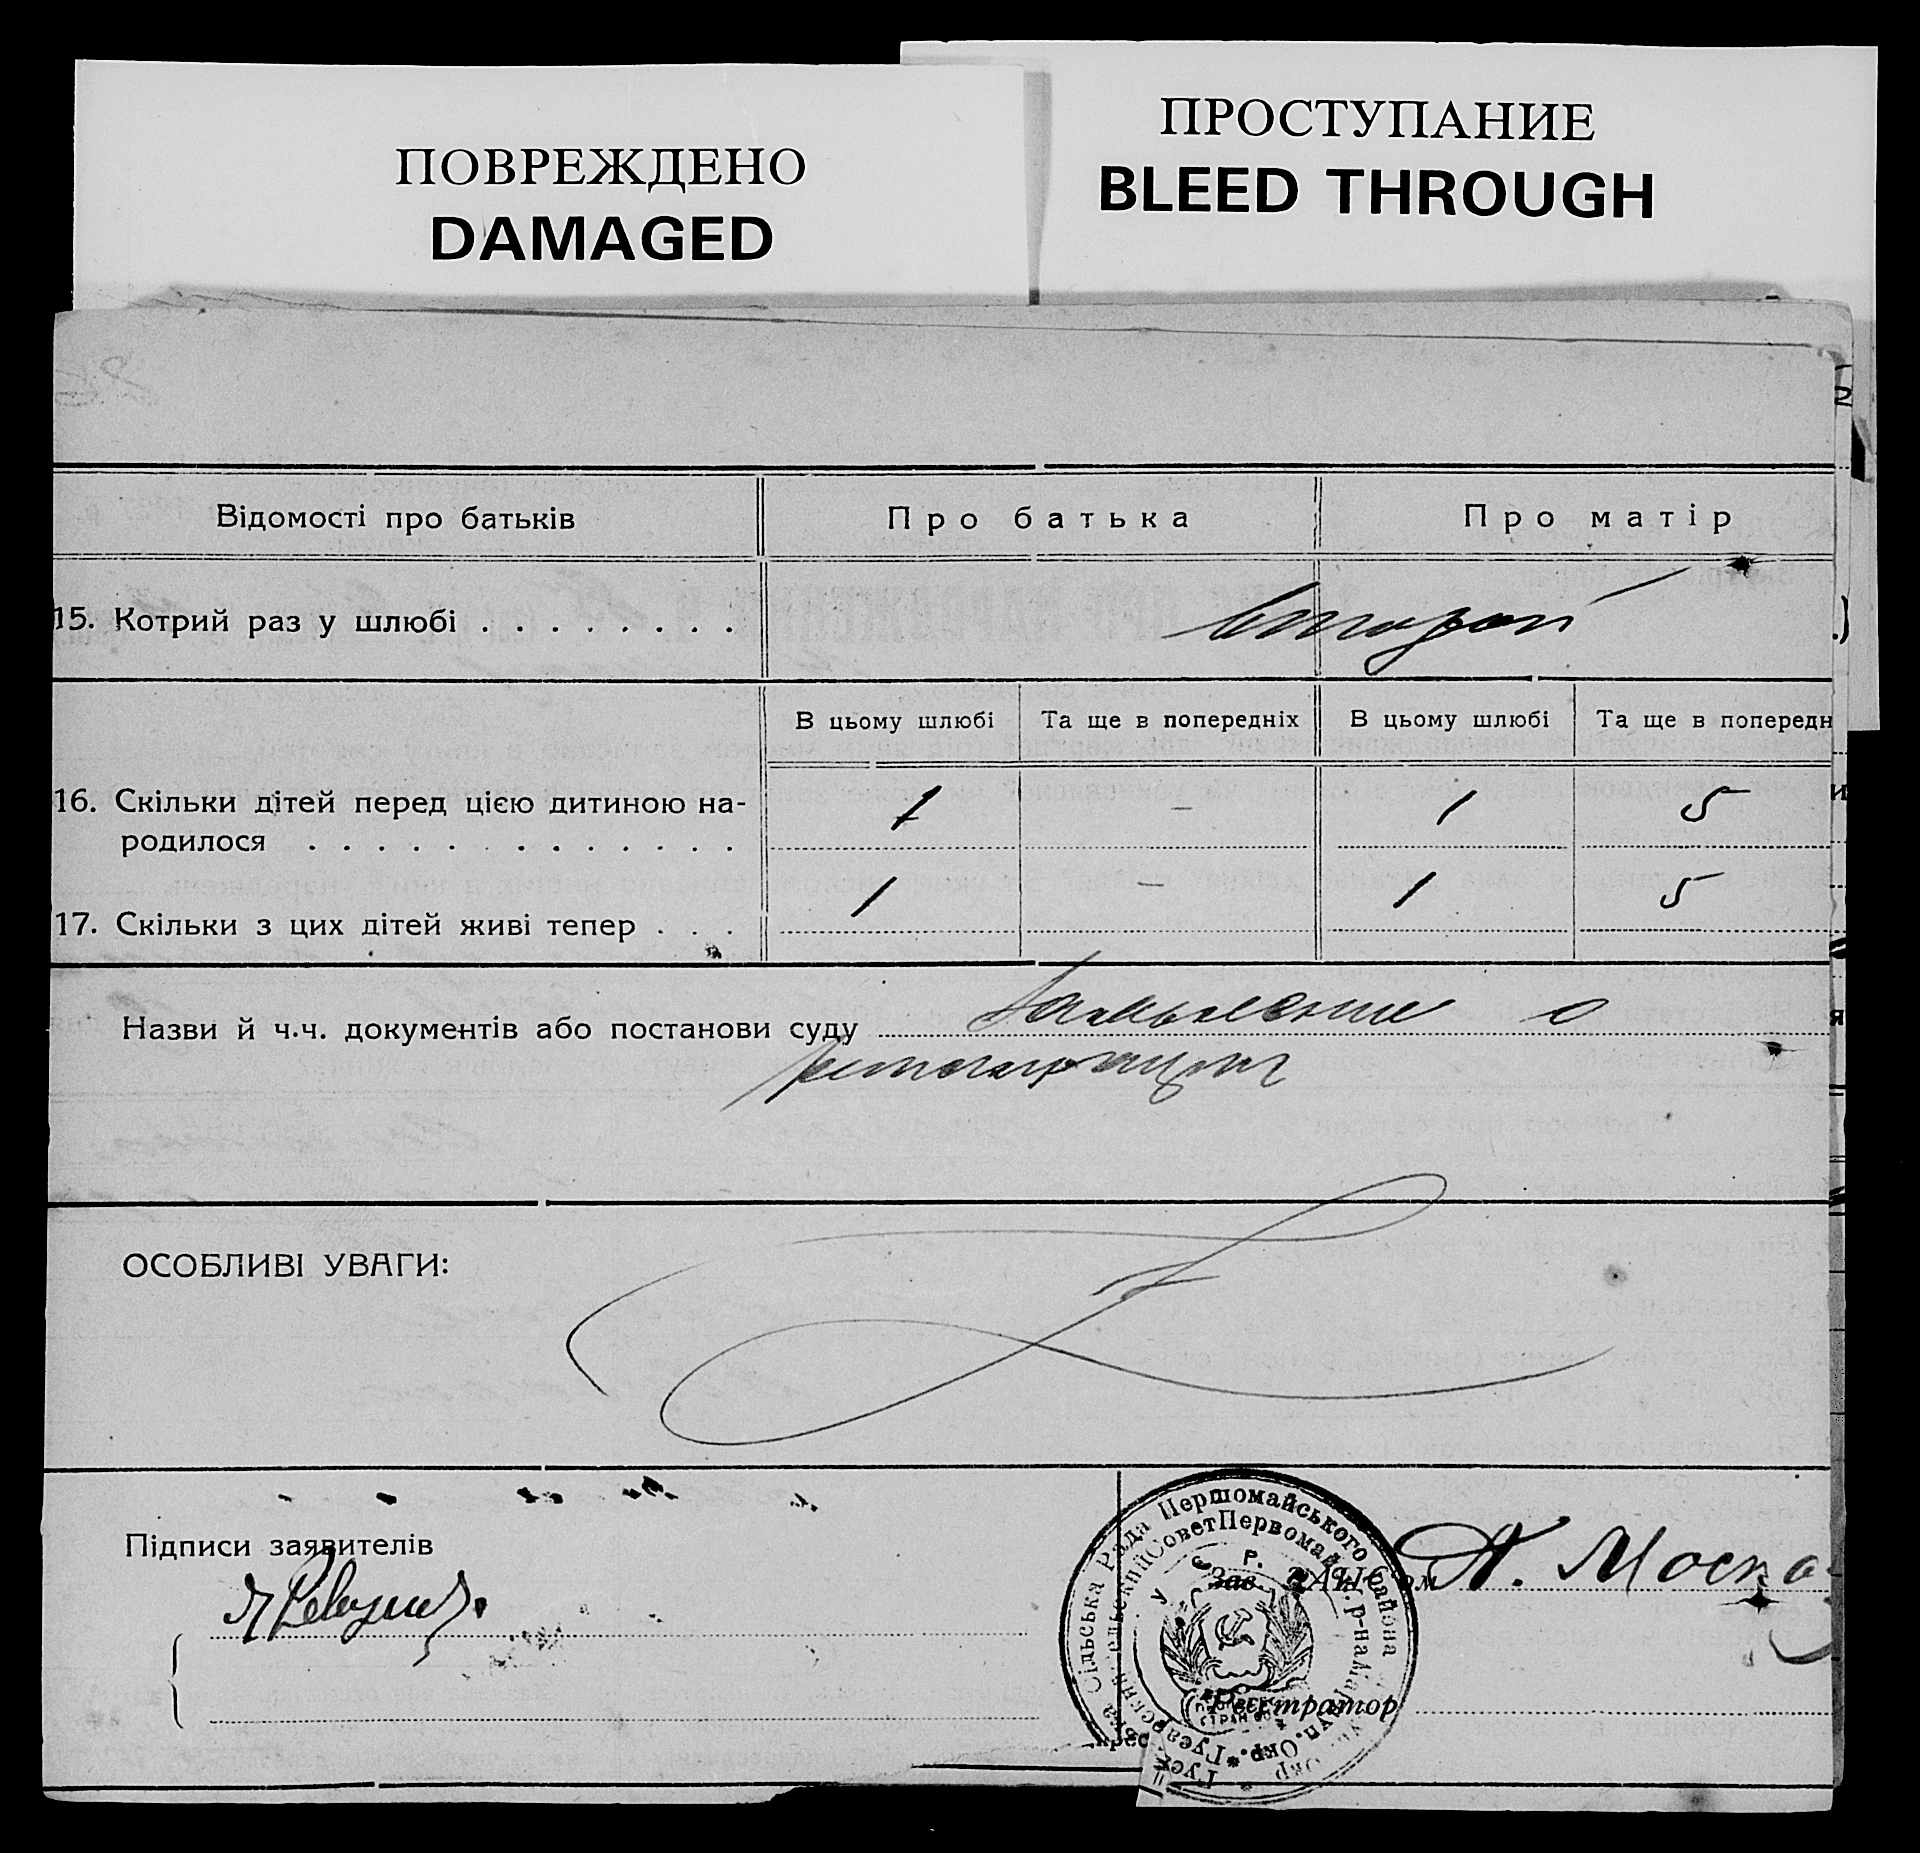 ПОВРЕЖДЕНО
DAMAGED
ПРОСТУПАНИЕ
BLEED THROUGH
Відомості про батьків
Про батька
Про матір
15. Котрий раз у шлюбі
второй
В цьому шлюбі
Та ще в попередніх
В цьому шлюбі
Та ще в попередн
16. Скільки дітей перед цією дитиною на-
родилося
1 – 1 5
17. Скільки з цих дітей живі тепер
1 – 1 5
Назви й ч.ч. документів або постанови суду
Заявление о
регистрации
ОСОБЛИВІ УВАГИ:
Підписи заявителів
Зав. ЗАГС'ом
А. Моска
Реєстратор
Сільська Рада Першомайського району
Совет Первомай. р-на Мариуп. Окр.
У. С. Р. Р.